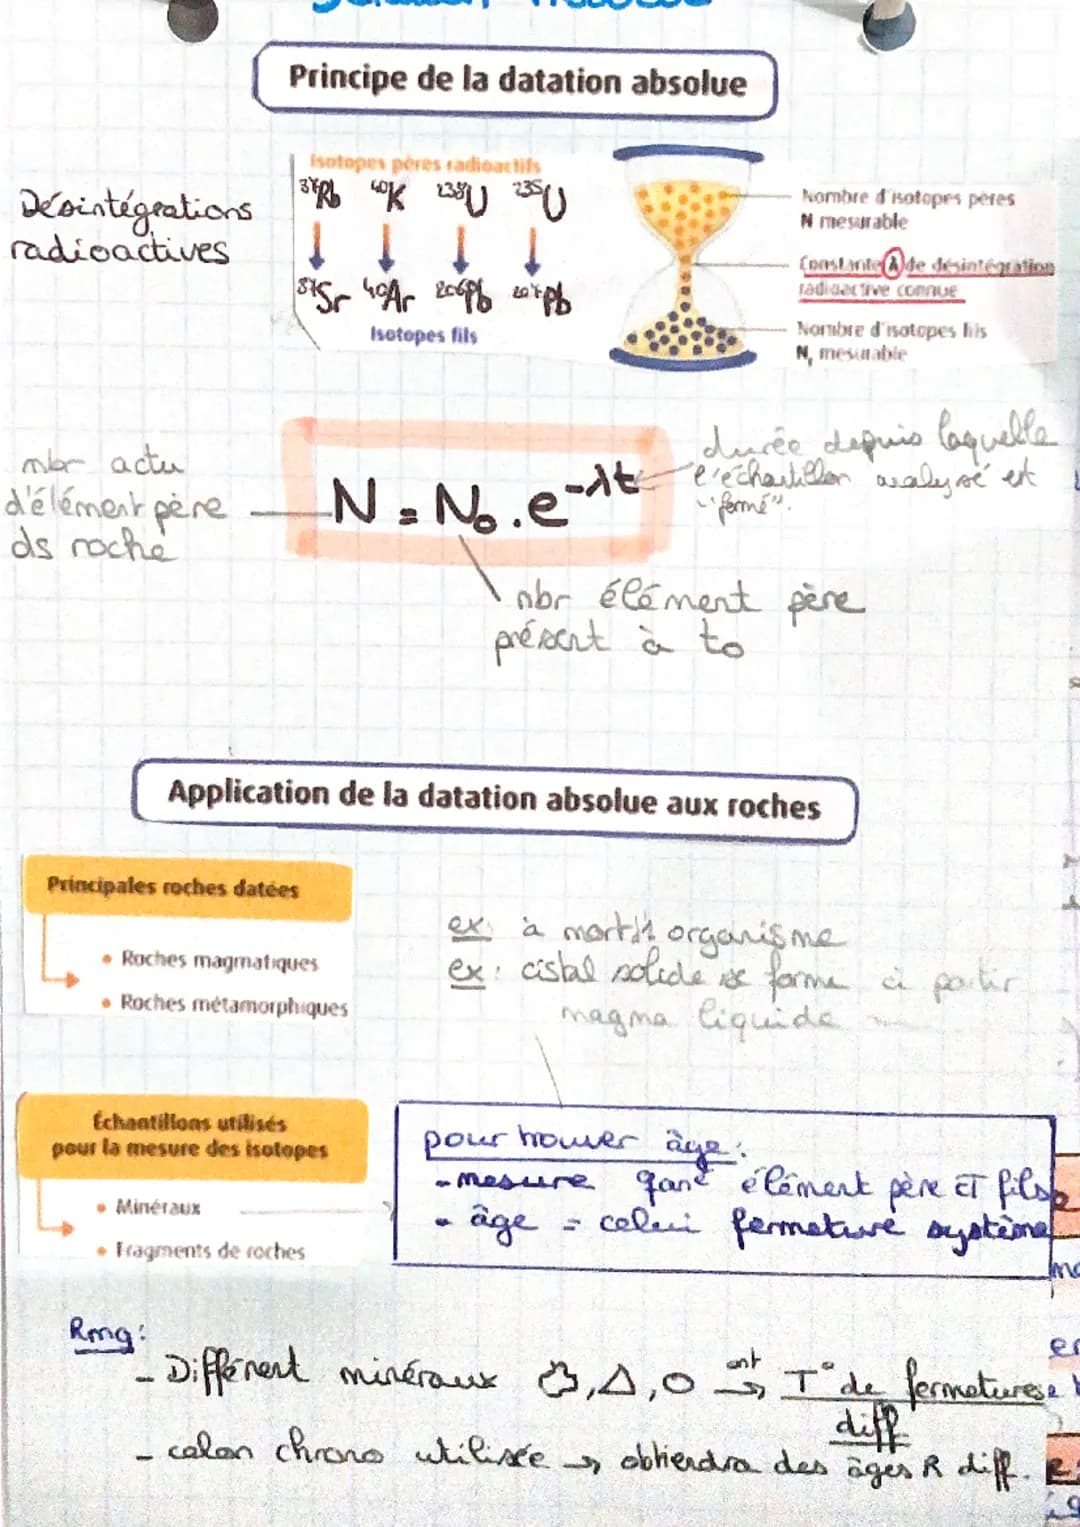 Principe de la datation absolue
Désintégrations
radioactives
Isotopes pères radioactifs
87Rb 40K 238U 235U
87Sr 40Ar 206Pb 207Pb
Isotopes fils
Nombre d'isotopes pères
N mesurable
Constante λ de désintégration
radioactive connue
Nombre d'isotopes fils
N, mesurable
nbr actu
d'élément père
ds roche
N = N₀.e^-λt
durée depuis laquelle
l'échantillon analysé est
"fermé".
nbr élément père
présent à t0
Application de la datation absolue aux roches
Principales roches datées
• Roches magmatiques
• Roches métamorphiques
ex: à mort d'1 organisme
ex: cistal solide se forme à partir
magma liquide
Échantillons utilisés
pour la mesure des isotopes
• Minéraux
• Fragments de roches
pour trouver âge:
- mesure qané élément père ET fils
- âge = celui fermeture système
Rmq:
- Différent minéraux , Δ, O ont → T° de fermetures
diff
- celon chrono utilisée → obtiendra des âges R diff.